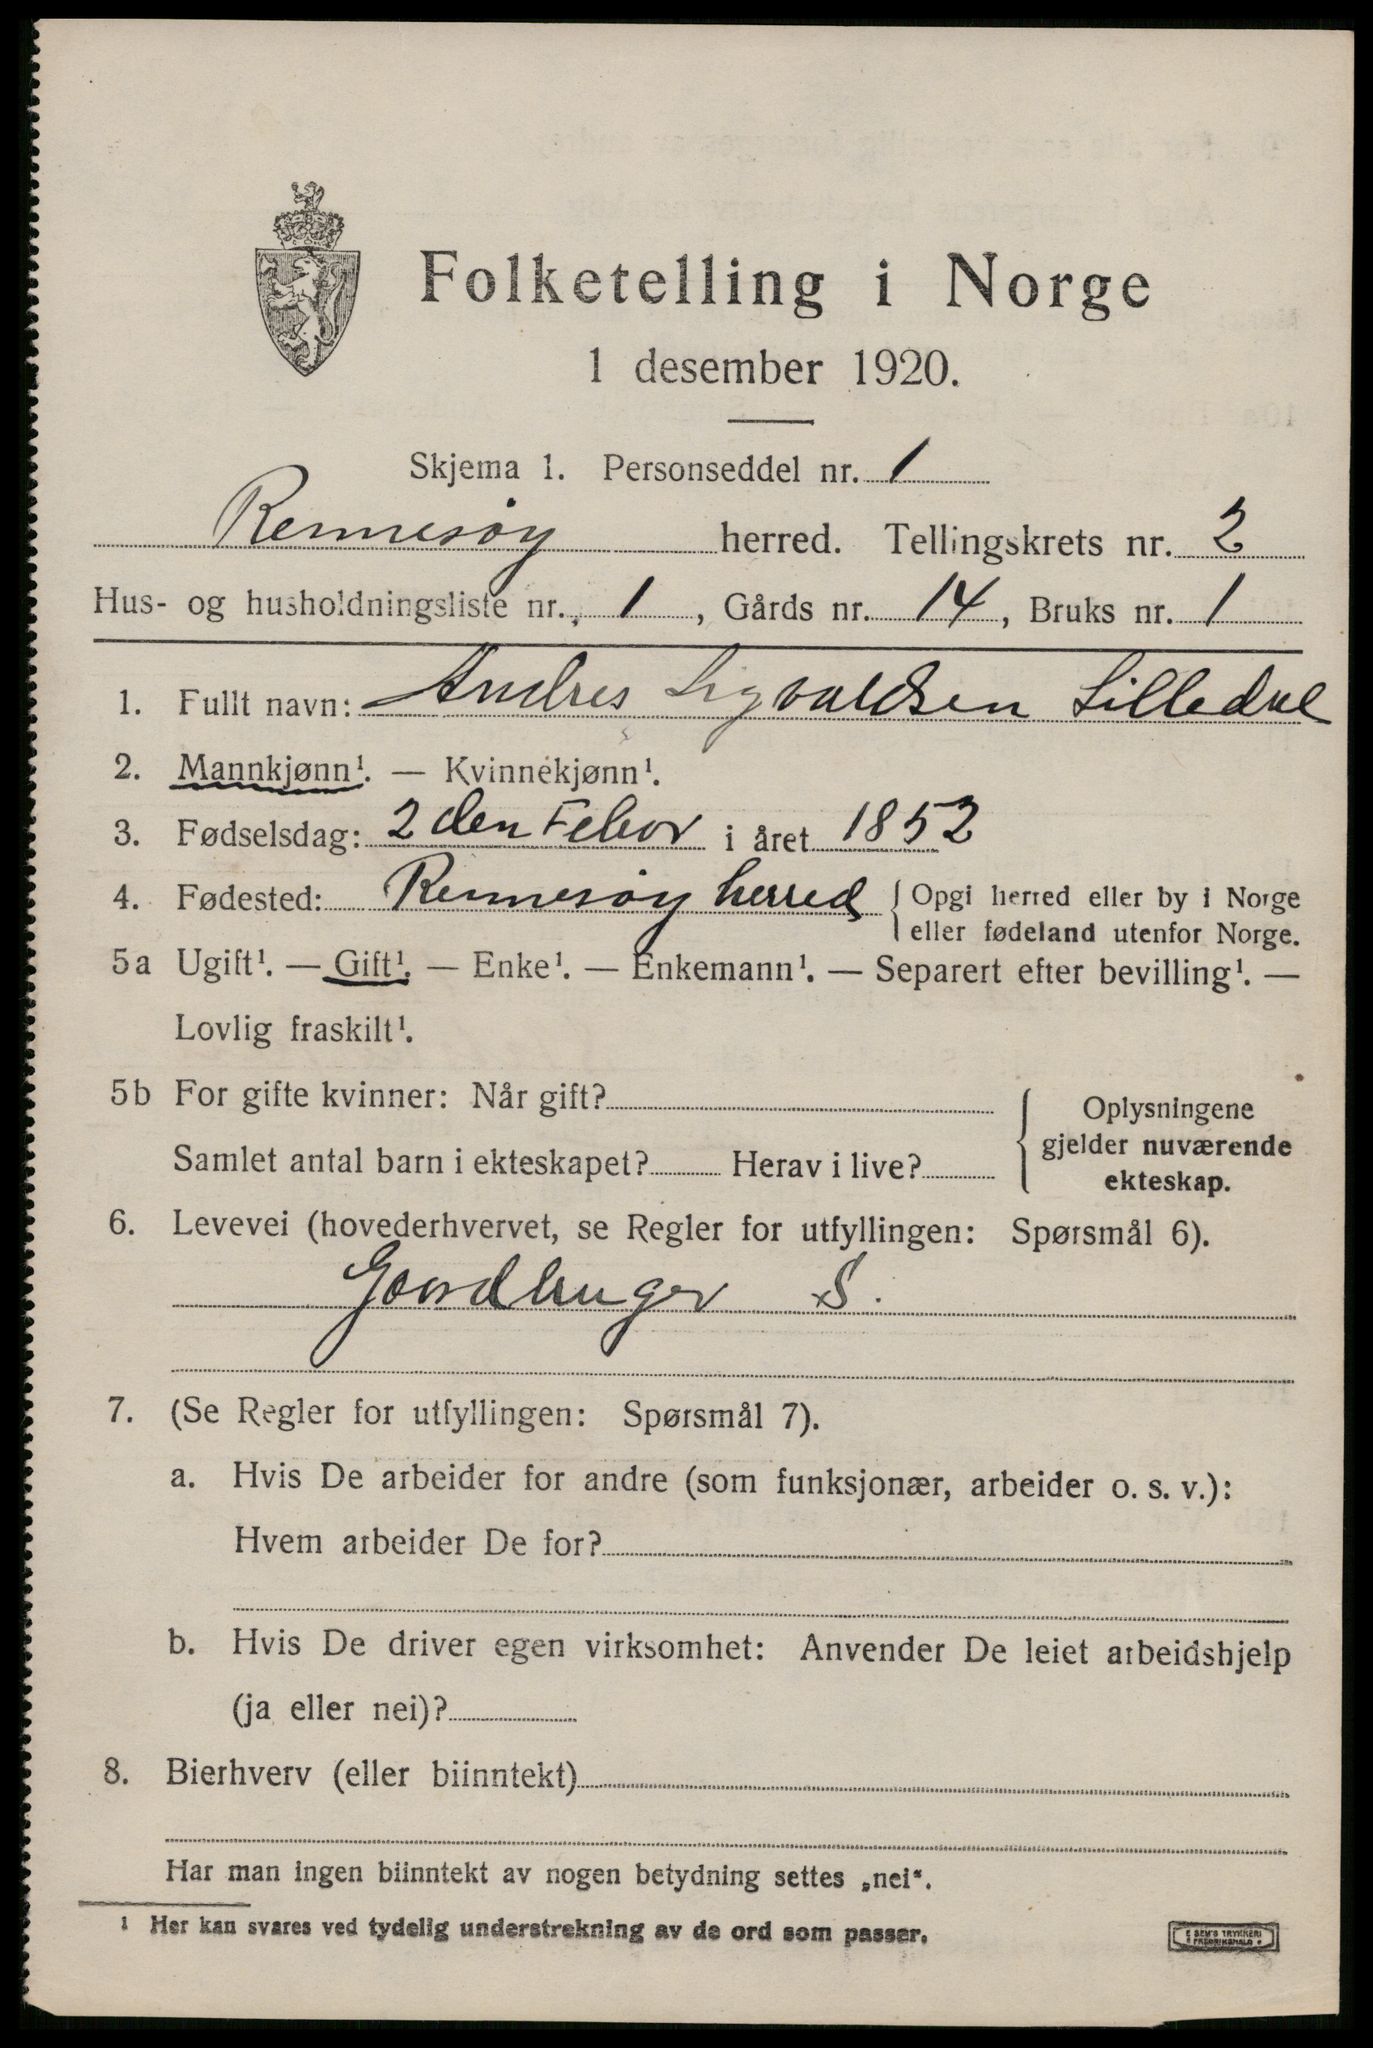 Folketelling i Norge
1 desember 1920.
Skjema 1. Personseddel nr. 1
Rennesøy herred. Tellingskrets nr. 2
Hus- og husholdningsliste nr. 1, Gårds nr. 14, Bruks nr. 1
1. Fullt navn: Andres Sigvaldsen Lilledal
2. Mannkjønn¹. — Kvinnekjønn¹.
3. Fødselsdag: 2 den Febor i året 1852
4. Fødested: Rennesøy herred { Opgi herred eller by i Norge
eller fødeland utenfor Norge.
5a Ugift¹. — Gift¹. — Enke¹. — Enkemann¹. — Separert efter bevilling¹. —
Lovlig fraskilt¹.
5b For gifte kvinner: Når gift?
Samlet antal barn i ekteskapet? Herav i live?
{ Oplysningene
gjelder nuværende
ekteskap.
6. Levevei (hovederhvervet, se Regler for utfyllingen: Spørsmål 6).
Gaardbruger S.
7. (Se Regler for utfyllingen: Spørsmål 7).
a. Hvis De arbeider for andre (som funksjonær, arbeider o. s. v.):
Hvem arbeider De for?
b. Hvis De driver egen virksomhet: Anvender De leiet arbeidshjelp
(ja eller nei)?
8. Bierhverv (eller biinntekt)
Har man ingen biinntekt av nogen betydning settes „nei“.
¹ Her kan svares ved tydelig understrekning av de ord som passer.
SEM'S TRYKKERI
FREDRIKSHALD